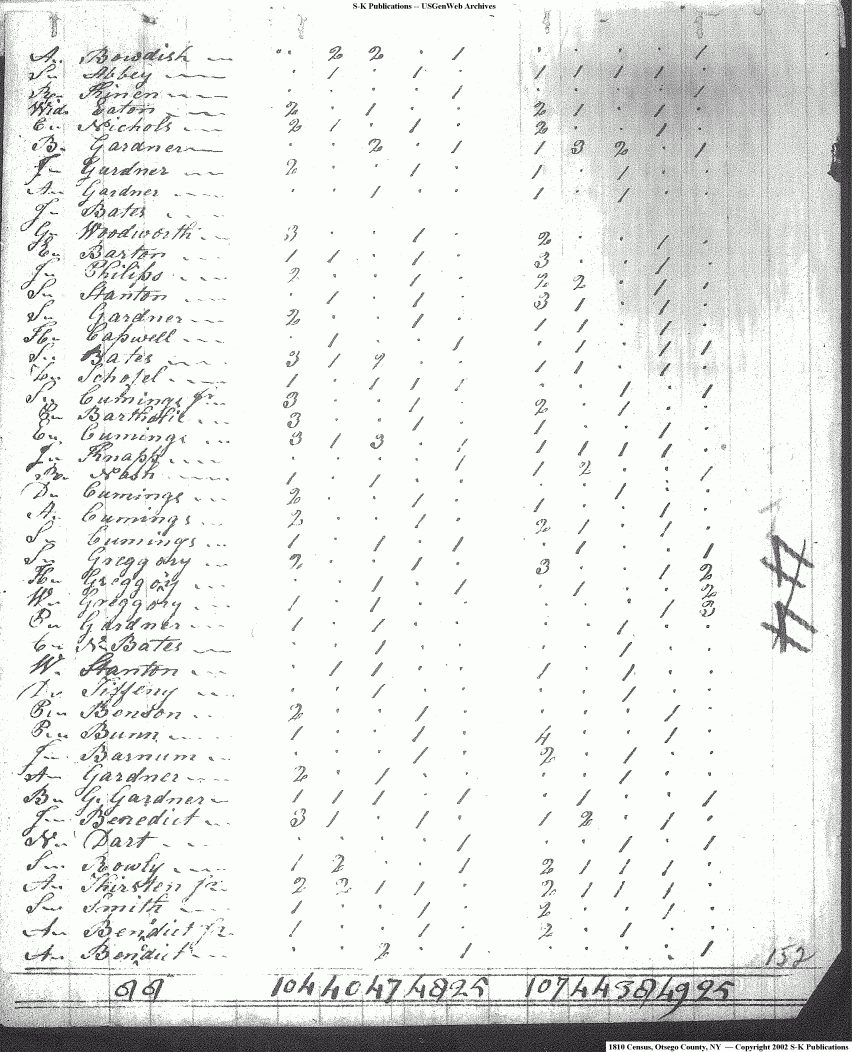 S-K Publications -- USGenWeb Archives
A. Bowdish .. 2 2 . 1 . . . . 1
S. Abbey . 1 . 1 . 1 1 1 1 .
R. Kinen . . . . 1 . . . . 1
Wid. Eaton 2 . 1 . . 2 1 . 1 .
C. Nichols 2 1 . 1 . 2 . . 1 .
B. Gardner . . 2 . 1 1 3 2 . 1
J. Gardner 2 . . 1 . 1 . 1 . .
A. Gardner . . 1 . . 1 . 1 . .
J. Bates
G. Woodworth 3 . . 1 . 2 . . 1 .
E. Barton 1 1 . 1 . 3 . . 1 .
J. Philips 2 . . 1 . 2 2 . 1 .
S. Stanton . 1 . 1 . 3 1 . 1 .
S. Gardner 2 . . 1 . 1 1 . 1 .
H. Capwell . 1 . . 1 1 1 . 1 1
S. Bates 3 1 2 . .
Schofel 1 . 1 1 1
S. Cumings Jr 3 . . . . 2 . 1 . .
E. Bartholic 3 . . 1 . 1 . . 1 .
E. Cumings 3 1 3 . 1 1 1 1 1 .
J. Knapp . . . . 1 1 2 . . 1
R. Nash 1 . 1 . . . . 1 . .
D. Cumings 2 . . 1 . 1 . . 1 .
A. Cumings 2 . . 1 . 2 1 . 1 .
S. Cumings 1 . 1 . 1 . 1 . . 1
S. Greggory 2 . . 1 . 3 . . . 2
H. Greggory . . 1 . 1 . 1 . . 2
W. Greggory 1 . 1 . . . . . 1 3
P. Gardner 1 . 1 . . . . 1 . .
C. N. Bates . . 1 . . . . 1 . .
W. Stanton . 1 1 . . 1 . 1 . .
D. Tiffeny . . 1 . . . . 1 . .
P. Benson 2 . . 1 . . . . 1 .
P. Bunn 1 . . 1 . 4 . . 1 .
J. Barnum . . . 1 . 2 . 1 . .
A. Gardner 2 . 1 . . . . 1 . .
B. G. Gardner 1 1 1 . 1 . 1 . . 1
J. Benedict 3 1 . 1 . 1 2 . 1 .
N. Dart . . . . 1 . . 1 . 1
S. Rowly 1 2 . . 1 2 1 1 1 .
A. Thirsten Jr 2 2 1 1 . 2 1 1 1 .
S. Smith 1 . . 1 . 2 . . 1 .
A. Benedict Jr 1 . . 1 . 2 . 1 . .
A. Benedict . . 2 . 1 . . . . 1
44
152
104 40 47 48 25 107 44 38 49 25
1810 Census, Otsego County, NY — Copyright 2002 S-K Publications